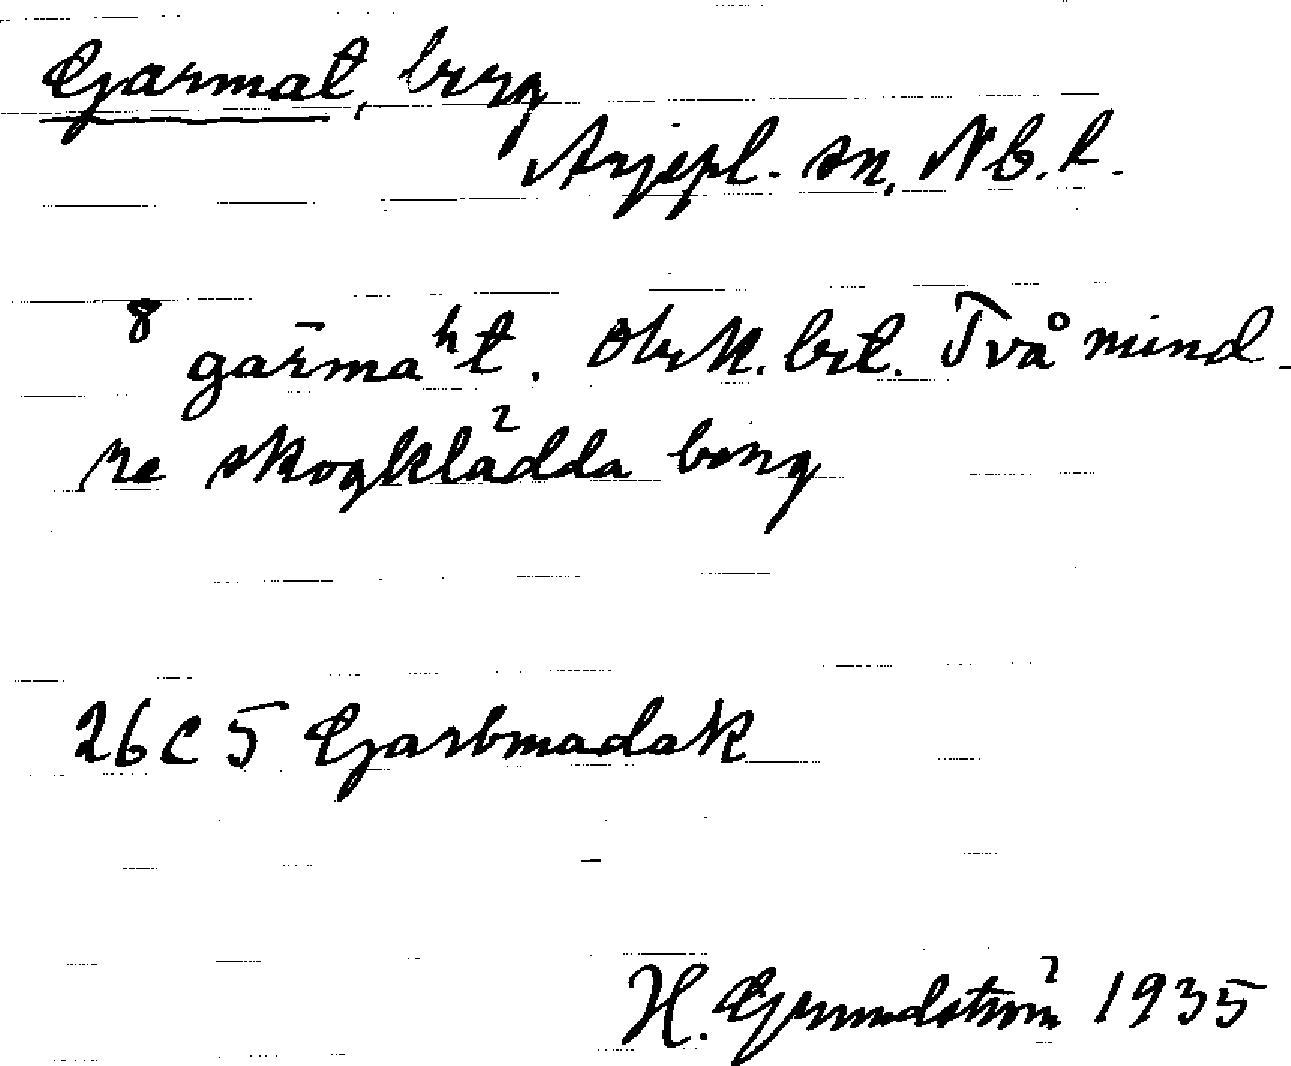 Garmat, berg
Arjepl. sn, Nb. l.
8 gar̄maʰt. Obek. bet. Två mind-
re skogklädda berg
26 C 5 Garbmadak
H. Grundström 1935